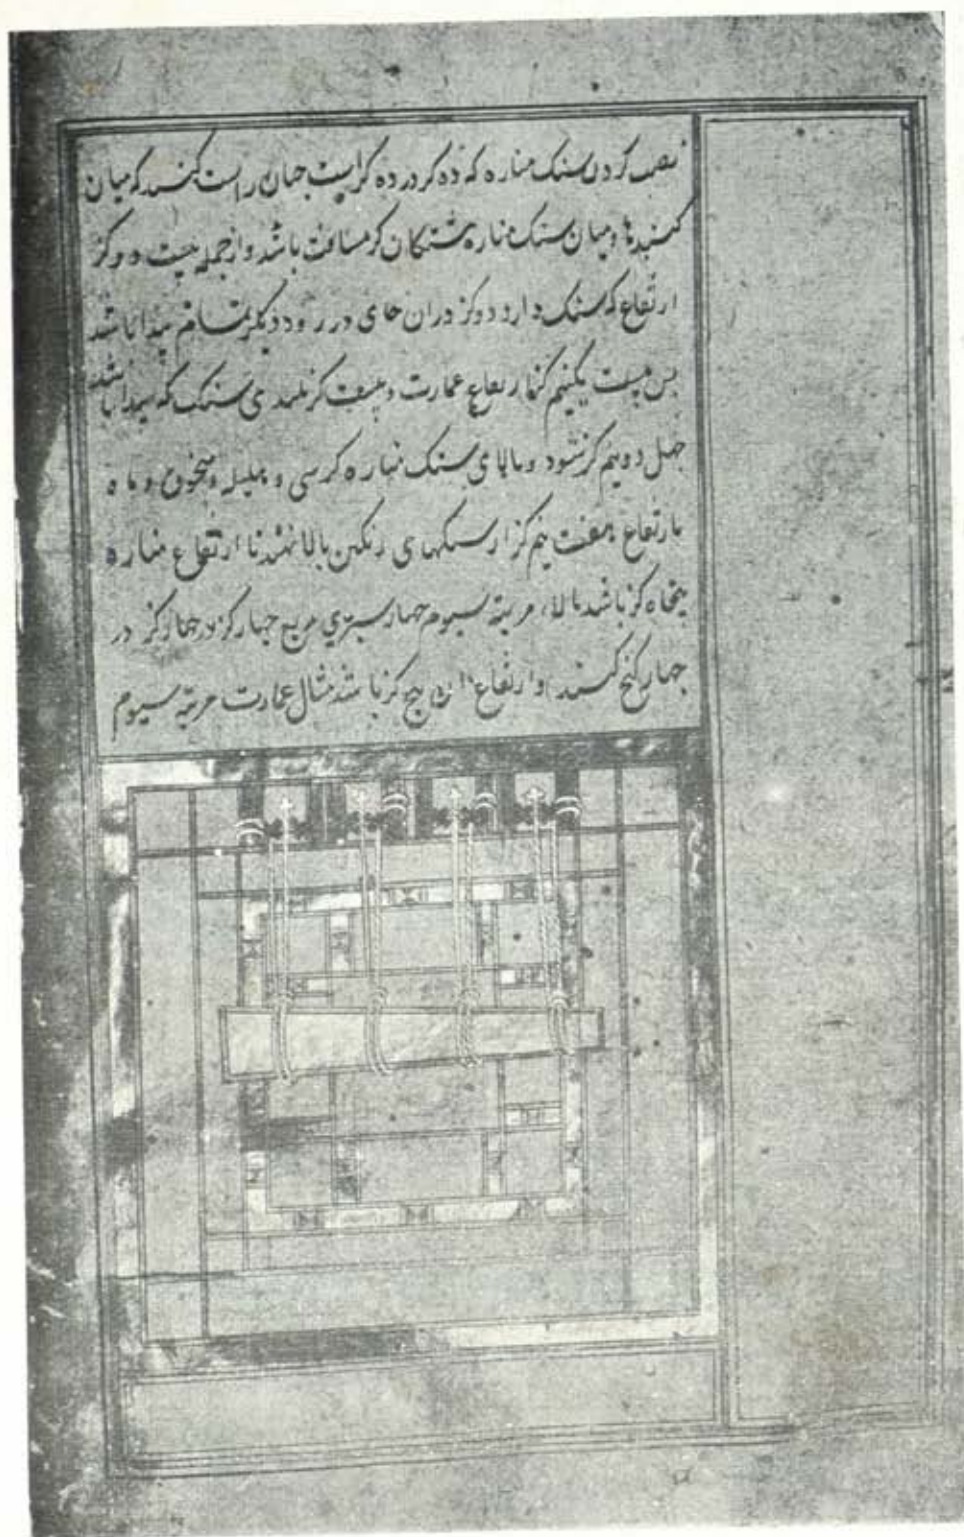 نصب کردن سنک مناره که ده کز در ده کز است جهان راست کنند که میان
کنبدها و میان سنک مناره شتکان کز مسافت باشد و از جمله بیست دو کز
ارتفاع که سنک دارد دو کز در ان جای در رود دیکر تمام پیدا باشد
بس بیست یکنیم کز ارتفاع عمارت و بیست کز بلندی سنک که پیدا باشد
جهل دو نیم کز شود و بالای سنک مناره کرسی و هلیله و منجوق و ماه
بارتفاع هفت نیم کز از سنکهای رنکین بالا نهند تا ارتفاع مناره
پنجاه کز باشد بالاء مرتبه سیوم جهار ستری مربع جهار کز در جهار کز در
جهار کنج کنند و ارتفاع پنج کز باشد مثال عمارت مرتبه سیوم